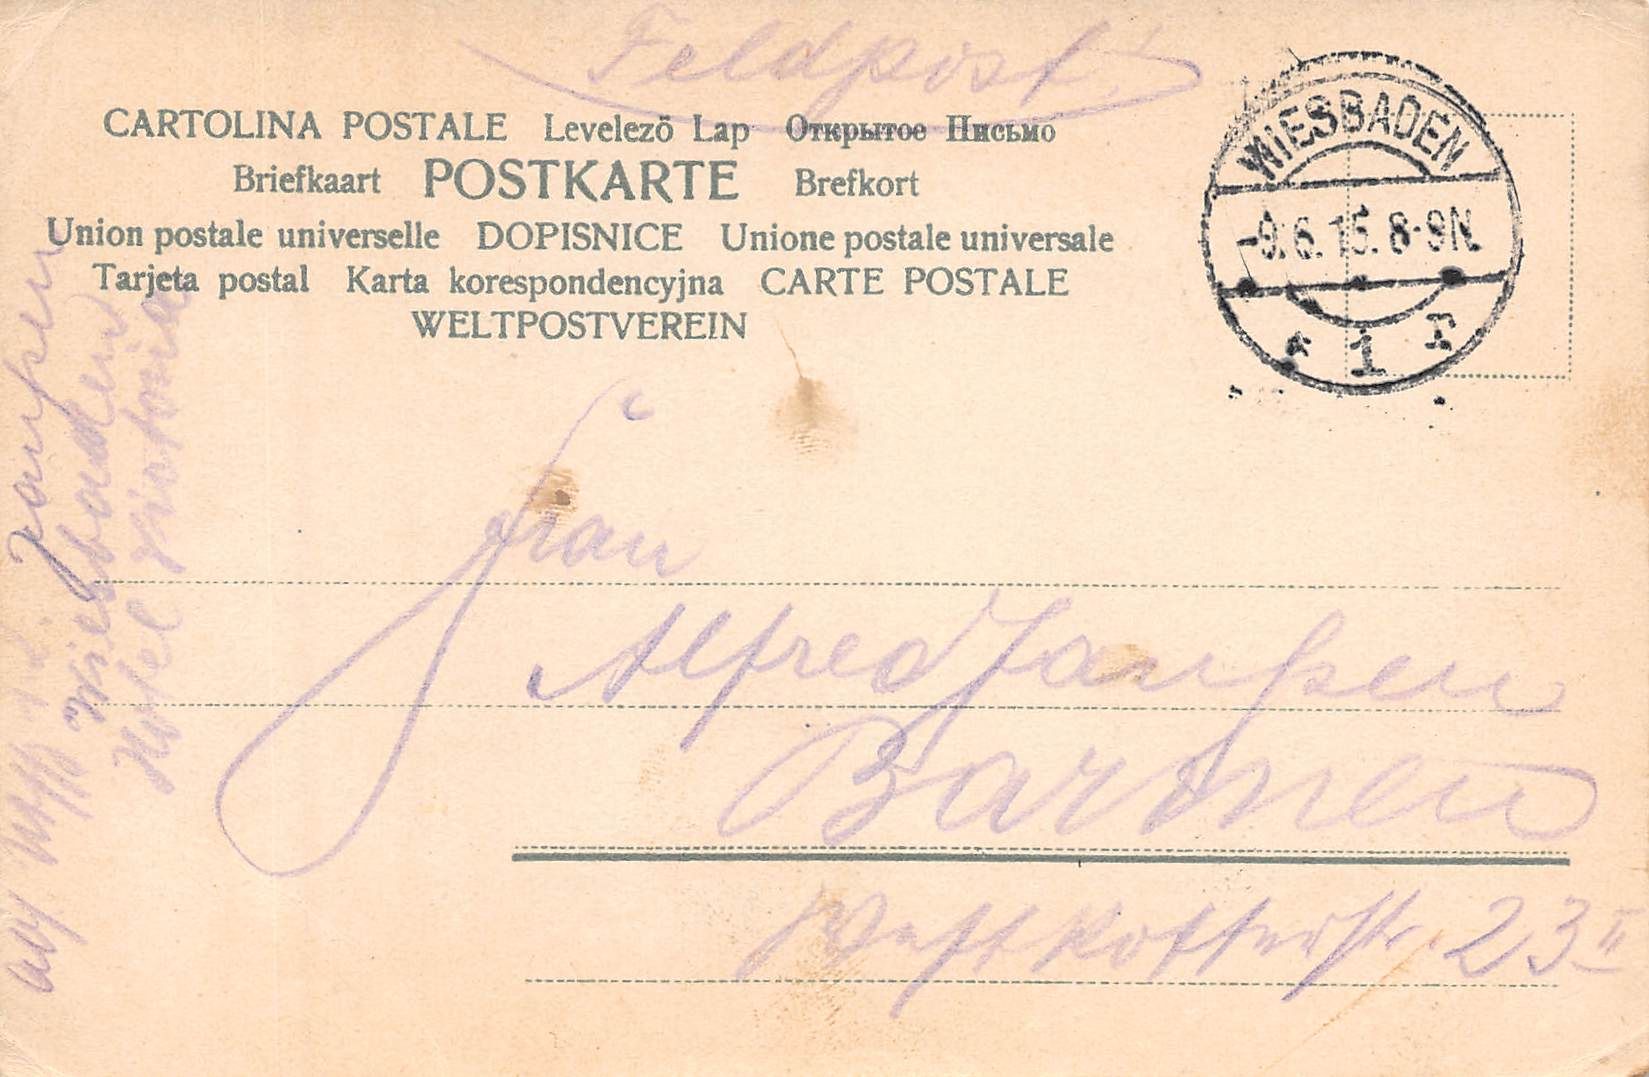 Feldpost!
CARTOLINA POSTALE Levelező Lap Открытое Письмо
Briefkaart POSTKARTE Brefkort
Union postale universelle DOPISNICE Unione postale universale
Tarjeta postal Karta korespondencyjna CARTE POSTALE
WELTPOSTVEREIN
WIESBADEN
-9.6.15. 8-9N
* 1 r
Frau
Alfred Janßen
Barmen
Westkotterstr. 23 II
Janßen
Wiesbaden
Hotel Viktoria